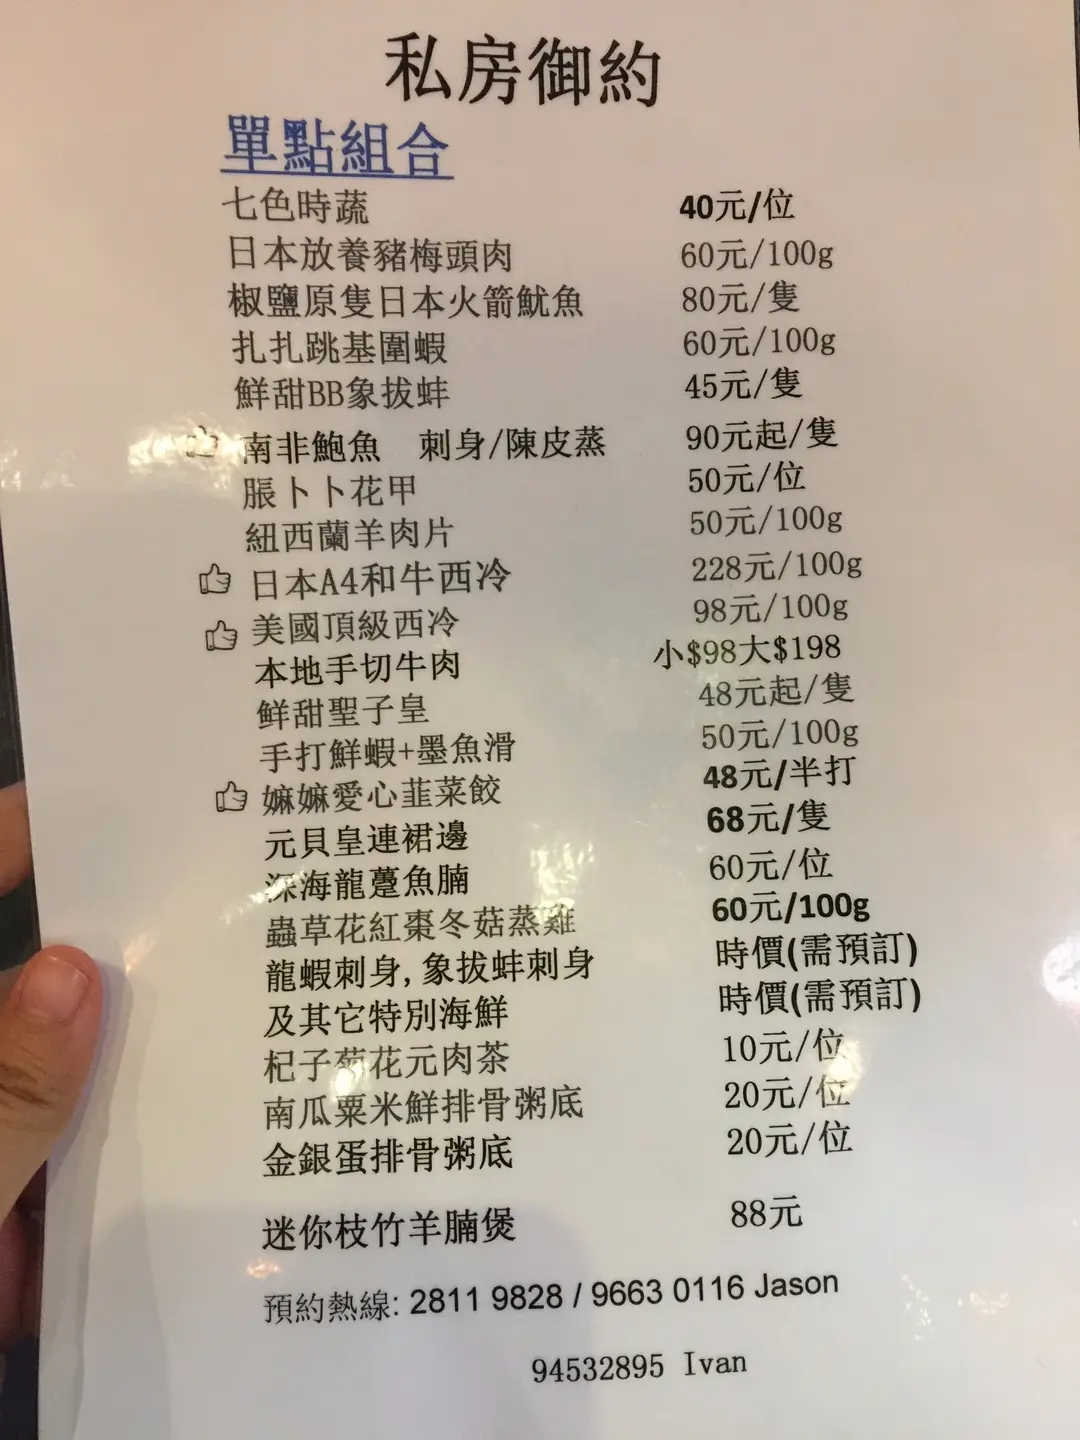 私房御約
單點組合
七色時蔬 40元/位
日本放養豬梅頭肉 60元/100g
椒鹽原隻日本火箭魷魚 80元/隻
扎扎跳基圍蝦 60元/100g
鮮甜BB象拔蚌 45元/隻
南非鮑魚 刺身/陳皮蒸 90元起/隻
脹卜卜花甲 50元/位
紐西蘭羊肉片 50元/100g
日本A4和牛西冷 228元/100g
美國頂級西冷 98元/100g
本地手切牛肉 小$98大$198
鮮甜聖子皇 48元起/隻
手打鮮蝦+墨魚滑 50元/100g
嫲嫲愛心韮菜餃 48元/半打
元貝皇連裙邊 68元/隻
深海龍躉魚腩 60元/位
蟲草花紅棗冬菇蒸雞 60元/100g
龍蝦刺身,象拔蚌刺身 時價(需預訂)
及其它特別海鮮 時價(需預訂)
杞子菊花元肉茶 10元/位
南瓜粟米鮮排骨粥底 20元/位
金銀蛋排骨粥底 20元/位
迷你枝竹羊腩煲 88元
預約熱線: 2811 9828 / 9663 0116 Jason
94532895 Ivan